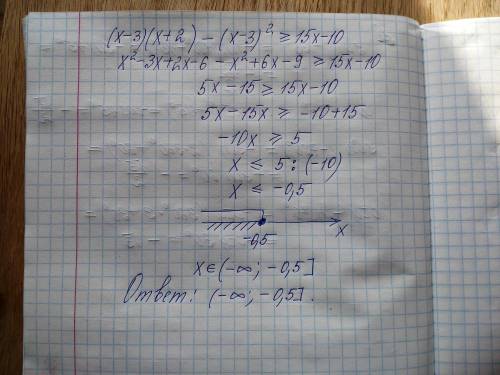 (x-3)(x+2) - (x-3)² ≥ 15x-10
x²-3x+2x-6 - x²+6x-9 ≥ 15x-10
5x-15 ≥ 15x-10
5x-15x ≥ -10+15
-10x ≥ 5
x ≤ 5:(-10)
x ≤ -0,5
-0,5 x
x∈(-∞; -0,5]
Ответ: (-∞; -0,5].